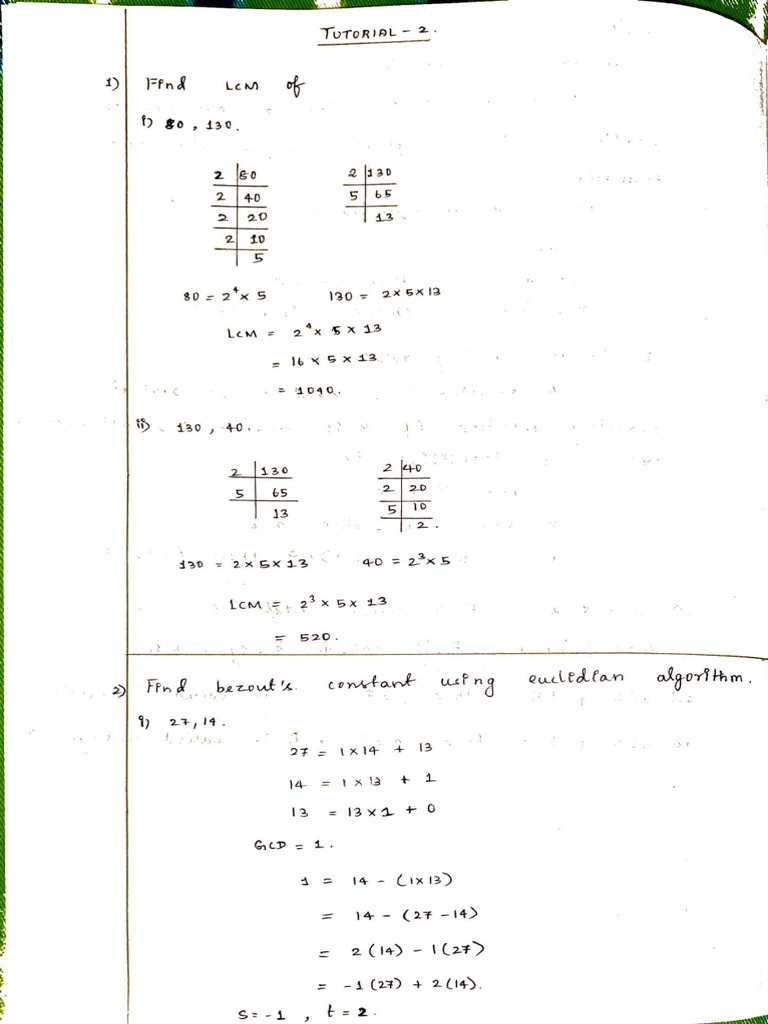 TUTORIAL - 2.
1) Find LCM of
i) 80, 130.
2 | 80    2 | 130
2 | 40    5 | 65
2 | 20    | 13
2 | 10
| 5
80 = 2⁴ x 5    130 = 2 x 5 x 13
LCM = 2⁴ x 5 x 13
= 16 x 5 x 13
= 1040.
ii) 130, 40..
2 | 130    2 | 40
5 | 65    2 | 20
| 13    5 | 10
| 2.
130 = 2 x 5 x 13    40 = 2³ x 5
LCM = 2³ x 5 x 13
= 520.
2) Find bezout's constant using euclidian algorithm.
i) 27, 14.
27 = 1 x 14 + 13
14 = 1 x 13 + 1
13 = 13 x 1 + 0
GCD = 1.
1 = 14 - (1x13)
= 14 - (27 - 14)
= 2 (14) - 1 (27)
= -1 (27) + 2 (14).
S = -1, t = 2.